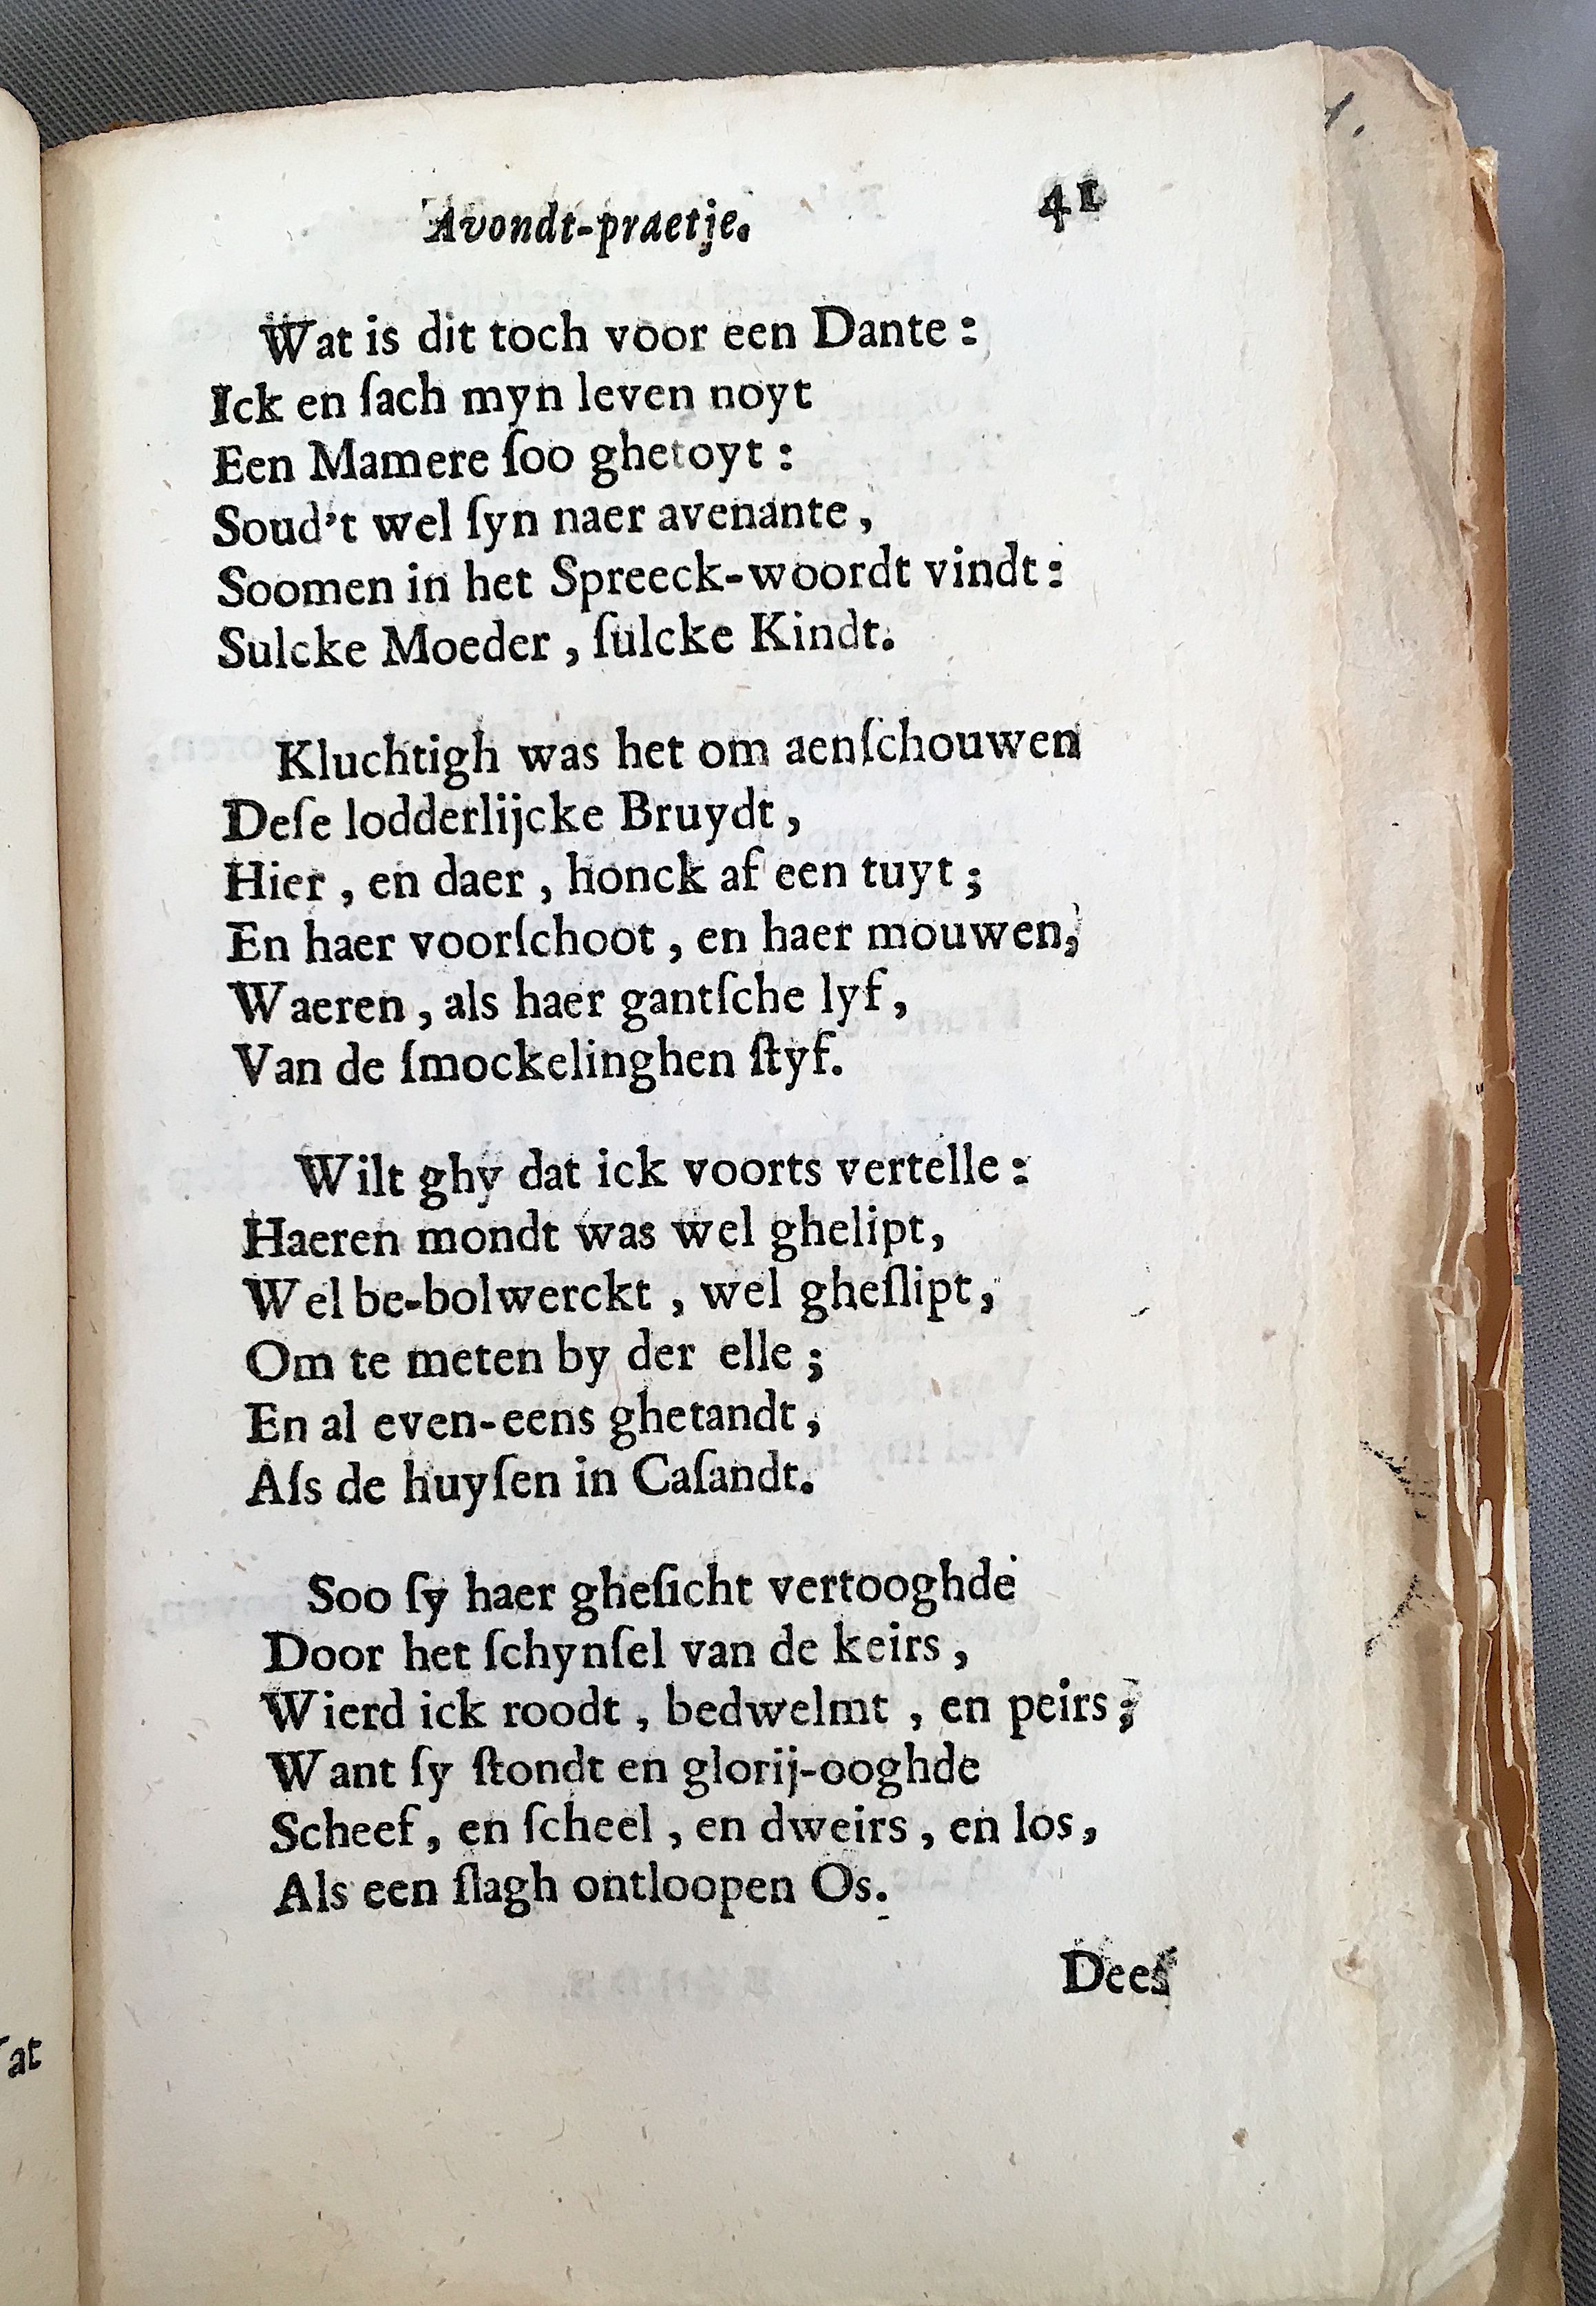 Avondt-praetje. 41
Wat is dit toch voor een Dante:
Ick en ſach myn leven noyt
Een Mamere ſoo ghetoyt:
Soud't wel ſyn naer avenante,
Soomen in het Spreeck-woordt vindt:
Sulcke Moeder, ſulcke Kindt.
Kluchtigh was het om aenſchouwen
Deſe lodderlijcke Bruydt,
Hier, en daer, honck af een tuyt;
En haer voorſchoot, en haer mouwen,
Waeren, als haer gantſche lyf,
Van de ſmockelinghen ſtyf.
Wilt ghy dat ick voorts vertelle:
Haeren mondt was wel ghelipt,
Wel be-bolwerckt, wel gheſlipt,
Om te meten by der elle;
En al even-eens ghetandt,
Aſs de huyſen in Caſandt.
Soo ſy haer gheſicht vertooghde
Door het ſchynſel van de keirs,
Wierd ick roodt, bedwelmt, en peirs;
Want ſy ſtondt en glorij-ooghde
Scheef, en ſcheel, en dweirs, en los,
Als een ſlagh ontloopen Os.
Dees